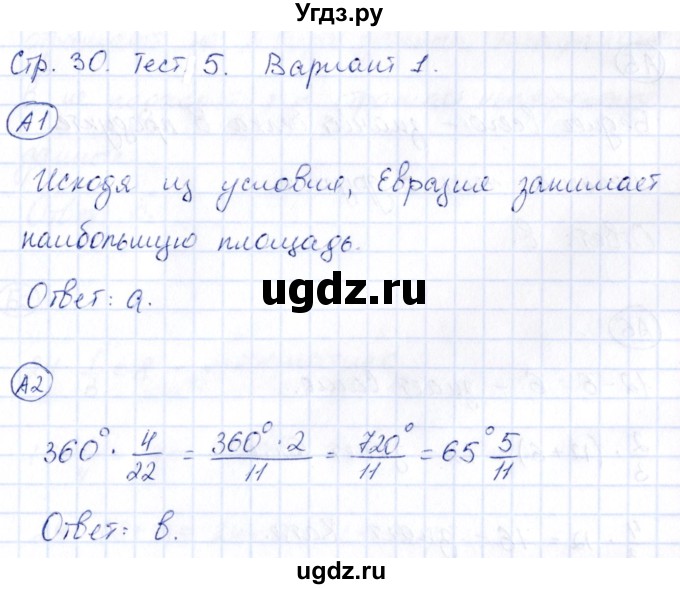 Угдз.ру
Стр. 30. Тест 5. Вариант 1.
А1
Исходя из условия, Евразия занимает
наибольшую площадь.
ugdz.ru
Ответ: а.
А2
360° · 4/22 = 360° · 2/11 = 720°/11 = 65° 5/11
Ответ: в.
ugdz.ru